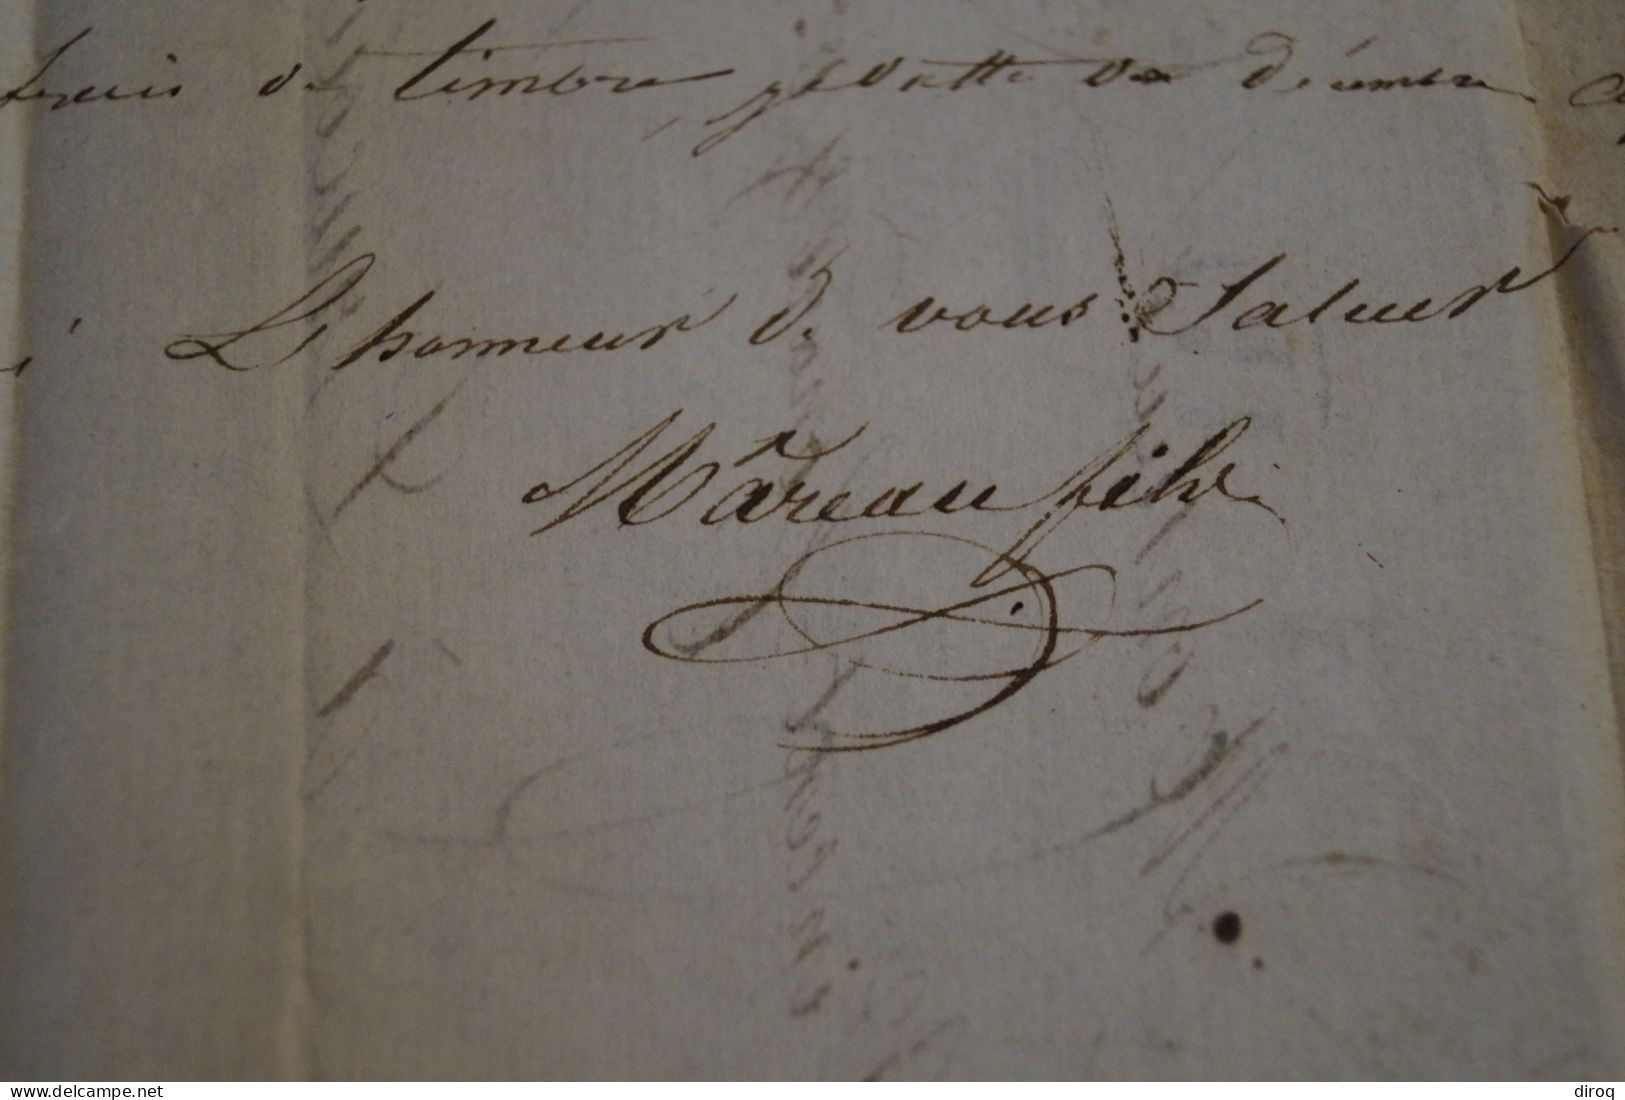 frais de timbre décembre
L'honneur de vous Saluer
Mâreau fils
www.delcampe.net
diroq